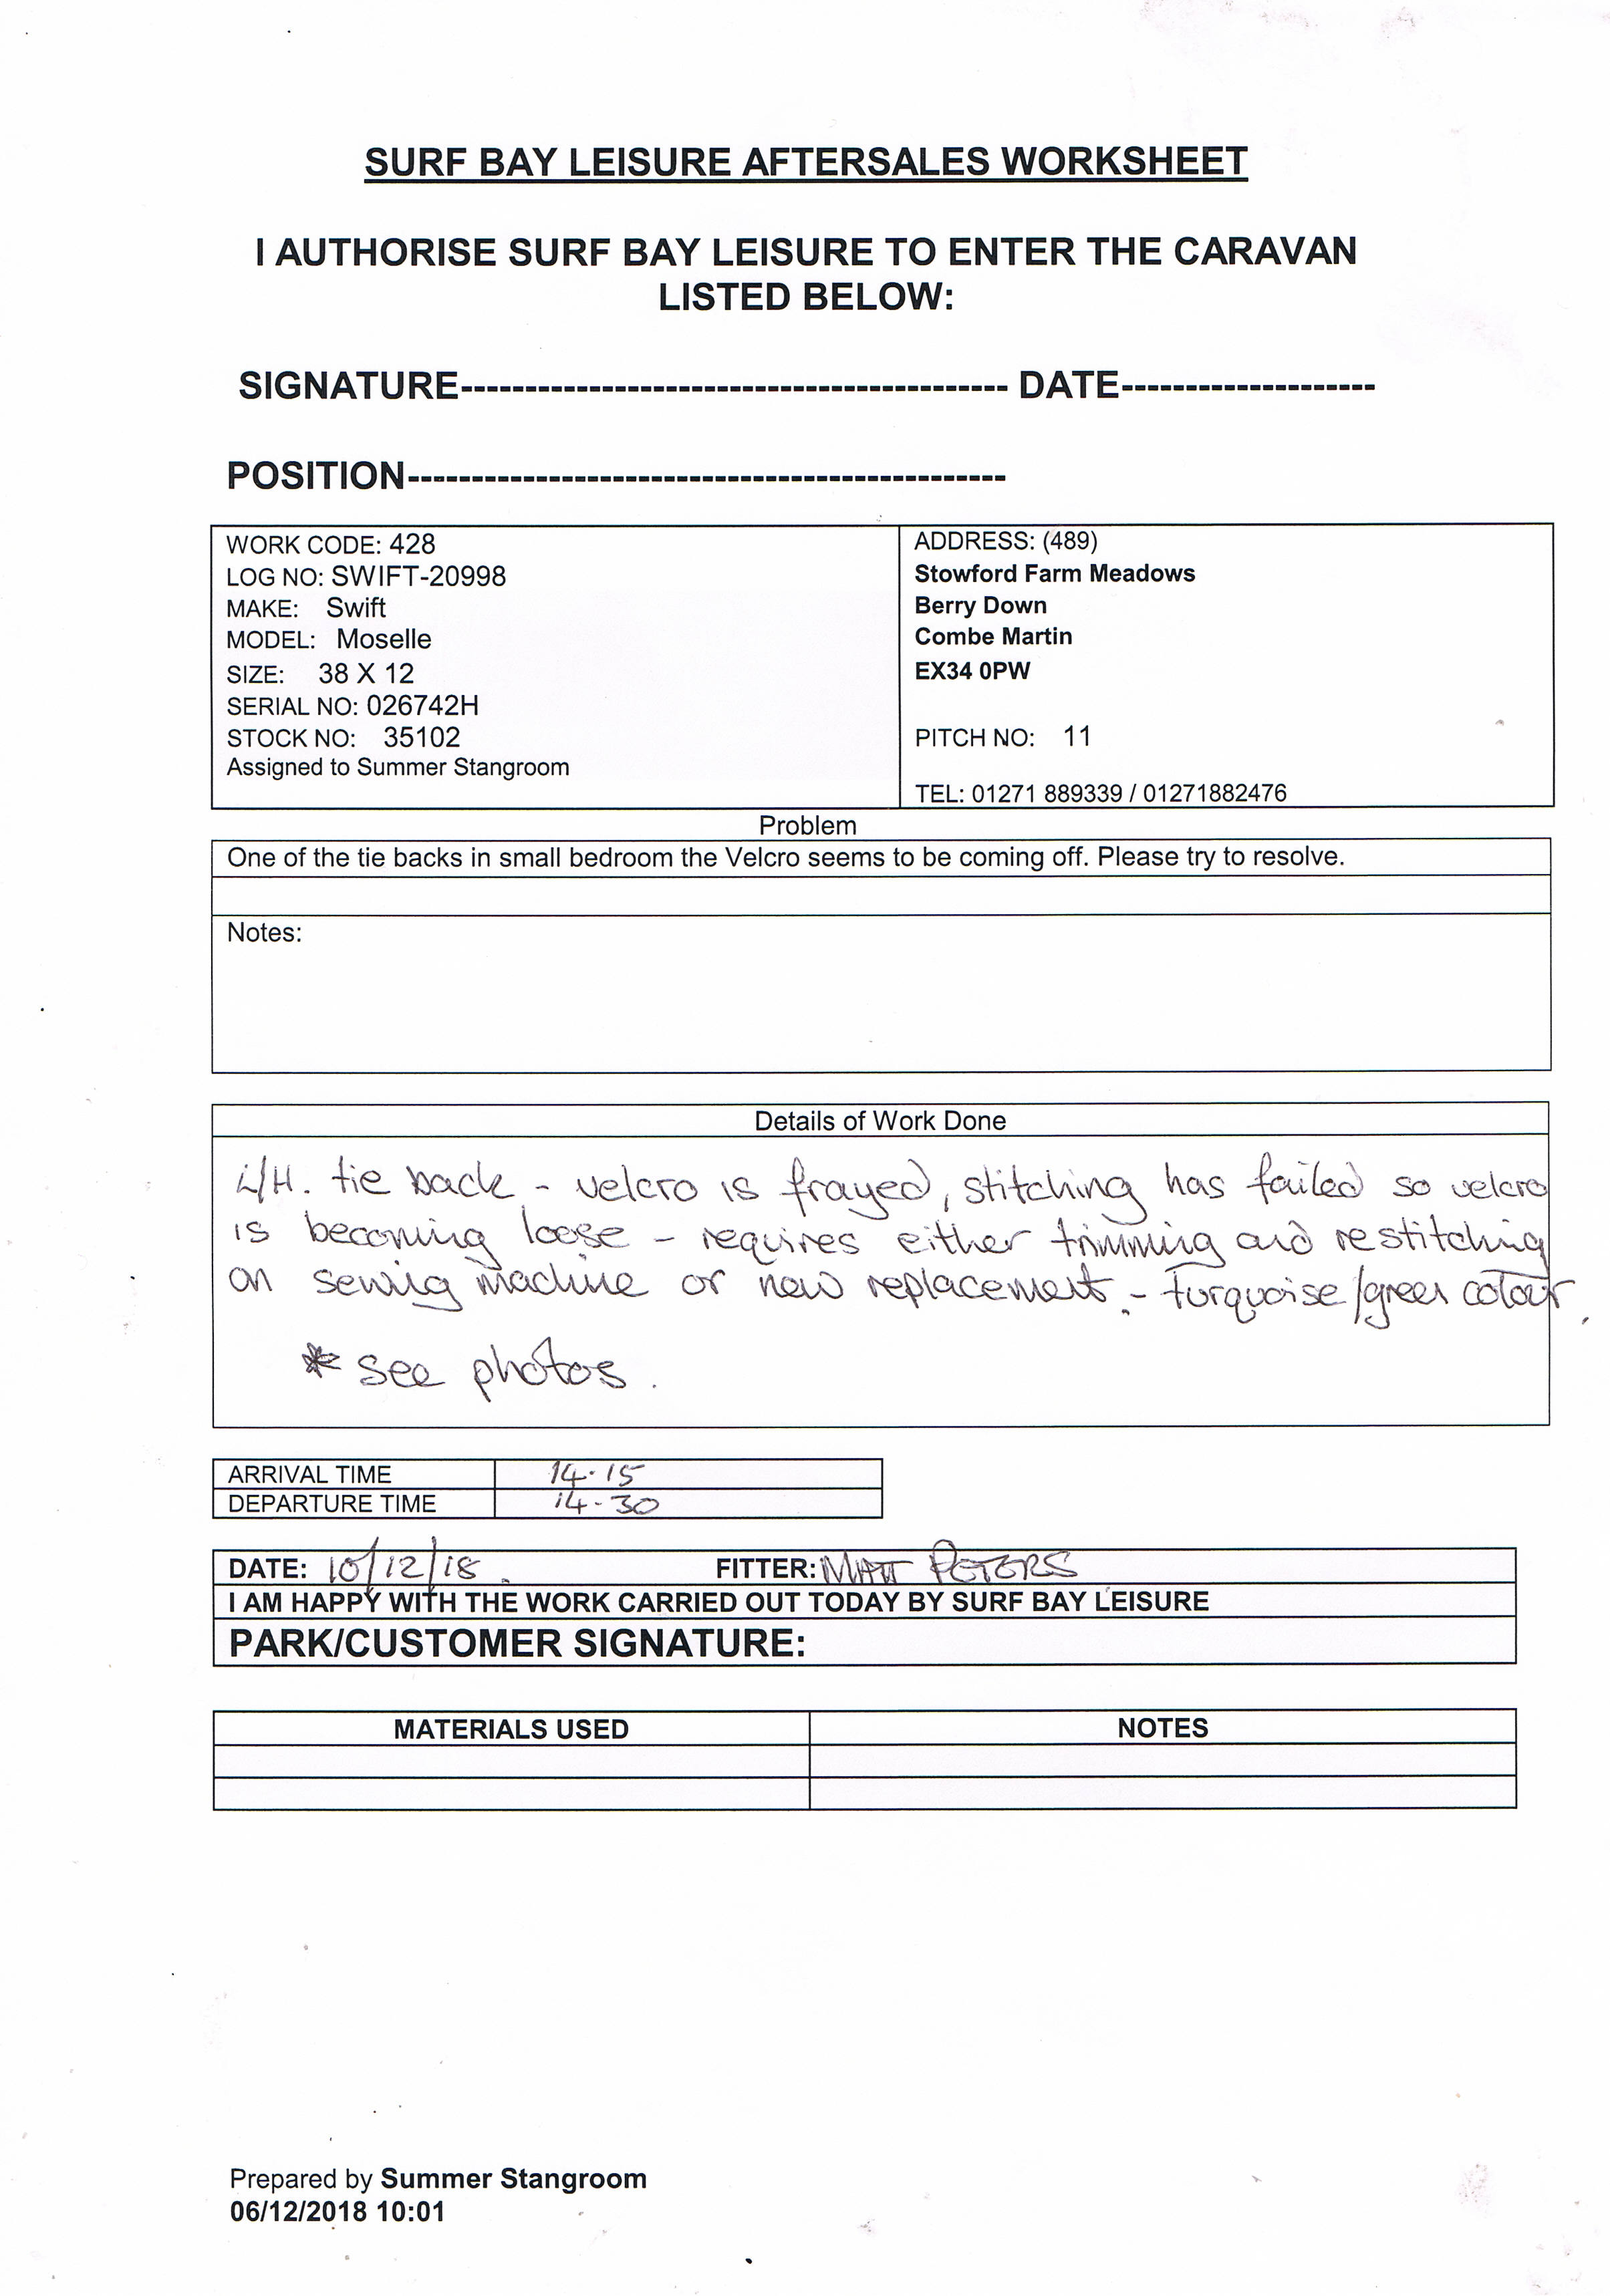 SURF BAY LEISURE AFTERSALES WORKSHEET
I AUTHORISE SURF BAY LEISURE TO ENTER THE CARAVAN
LISTED BELOW:
SIGNATURE------------------------------------------- DATE--------------------
POSITION-----------------------------------------------
WORK CODE: 428
LOG NO: SWIFT-20998
MAKE: Swift
MODEL: Moselle
SIZE: 38 X 12
SERIAL NO: 026742H
STOCK NO: 35102
Assigned to Summer Stangroom
ADDRESS: (489)
Stowford Farm Meadows
Berry Down
Combe Martin
EX34 0PW
PITCH NO: 11
TEL: 01271 889339 / 01271882476
Problem
One of the tie backs in small bedroom the Velcro seems to be coming off. Please try to resolve.
Notes:
Details of Work Done
L/H. tie back - velcro is frayed, stitching has failed so velcro
is becoming loose - requires either trimming and restitching
on sewing machine or new replacement. - turquoise/green colour.
* see photos.
ARRIVAL TIME 14.15
DEPARTURE TIME 14-30
DATE: 10/12/18. FITTER: MATT PETERS
I AM HAPPY WITH THE WORK CARRIED OUT TODAY BY SURF BAY LEISURE
PARK/CUSTOMER SIGNATURE:
MATERIALS USED NOTES
Prepared by Summer Stangroom
06/12/2018 10:01